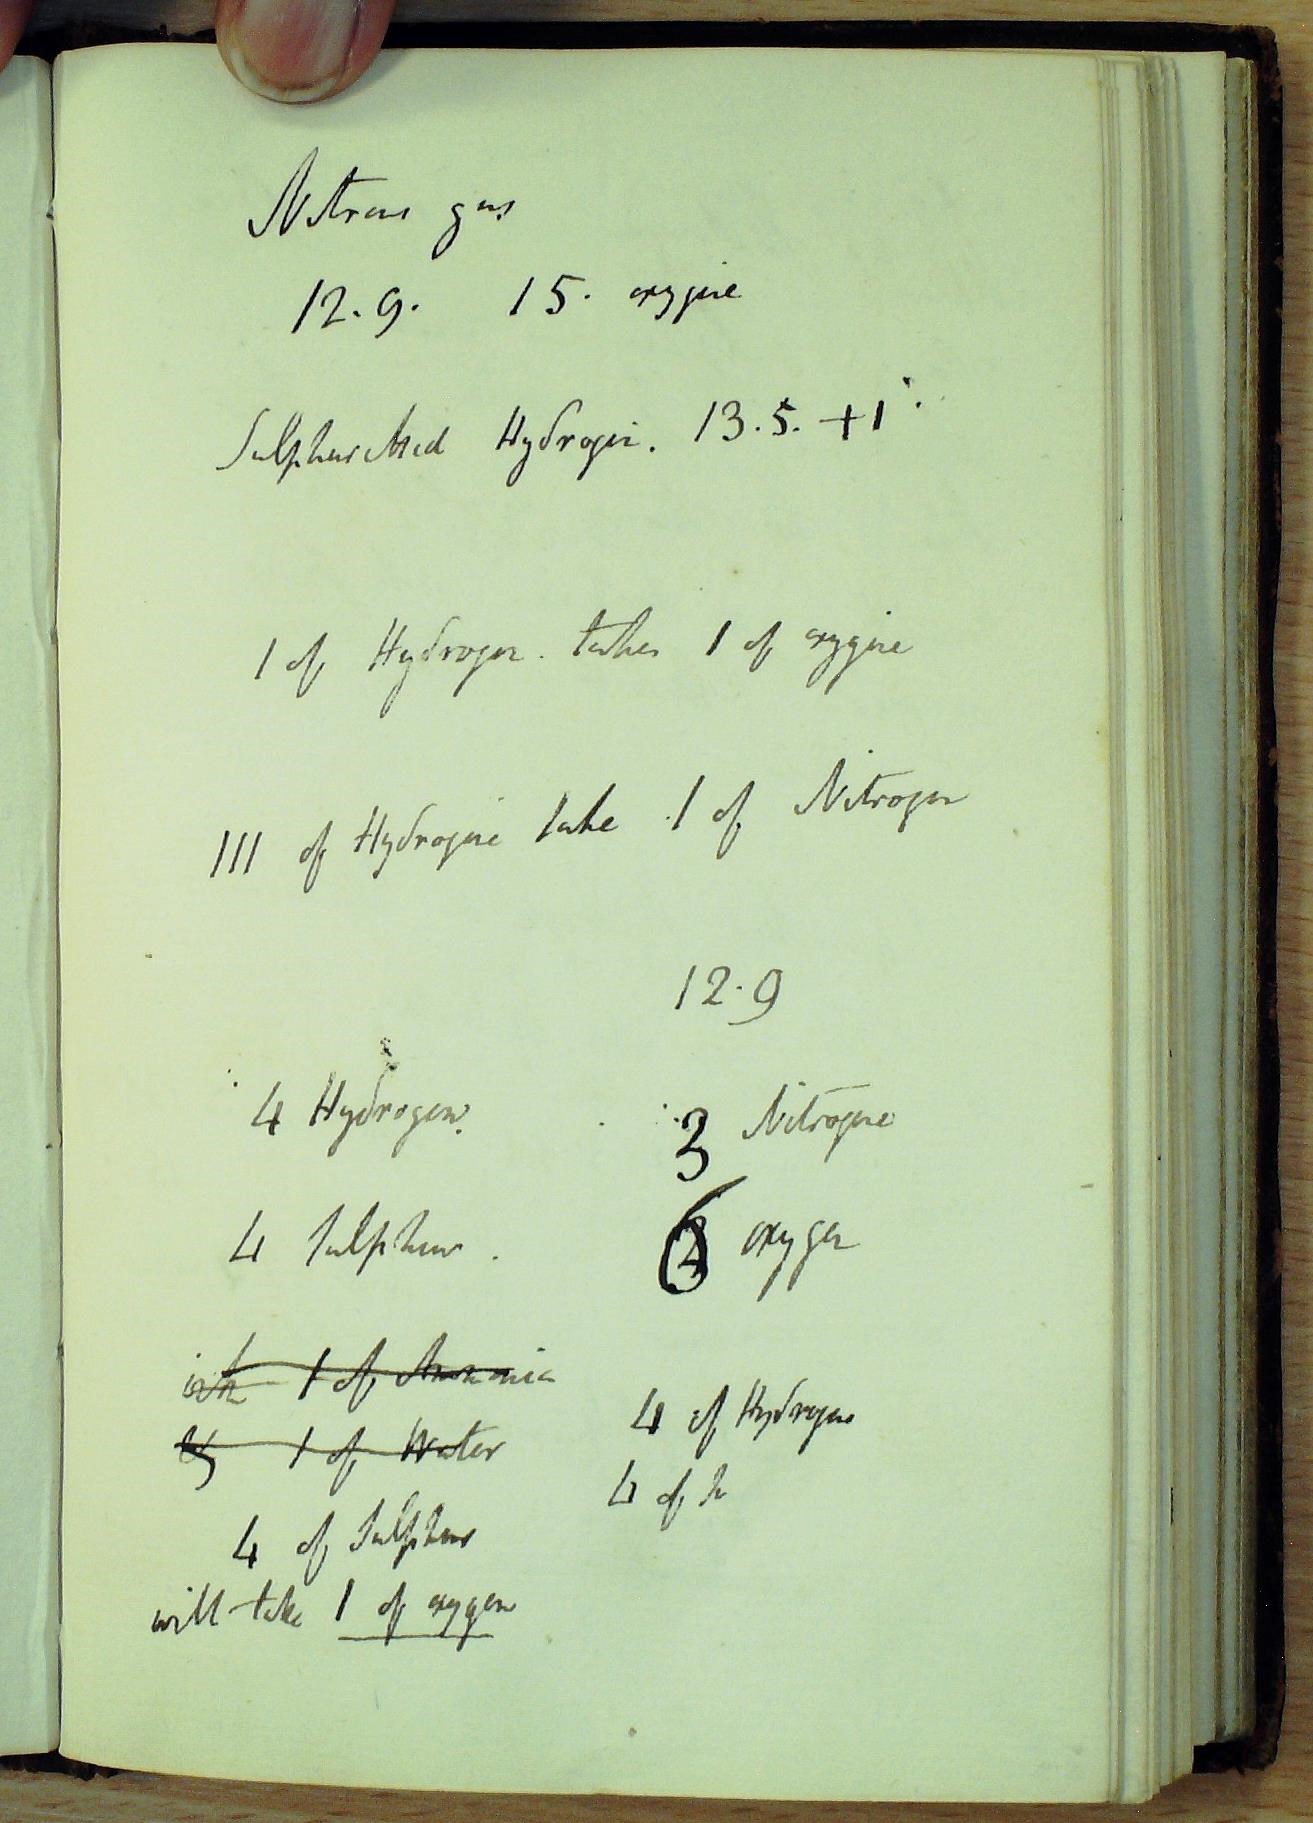 Nitrous gas
12.9. 15. oxygene
Sulphuretted Hydrogen. 13.5. +1
1 of Hydrogen. takes 1 of oxygene
111 of Hydrogene take 1 of Nitrogen
12.9
4 Hydrogen.
3 Nitrogene
4 Sulphur.
6 oxygen
1 of Ammonia
1 of Water
4 of Hydrogen
4 of
4 of Sulphur
will take 1 of oxygen